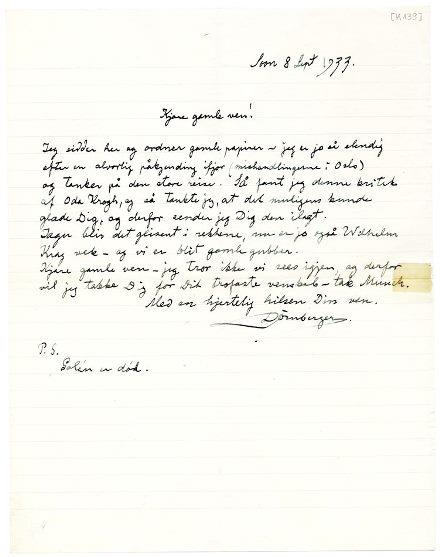 [K139]
Soon 8 Sept 1933.
Kjære gamle ven!
Jeg sidder her og ordner gamle papirer – jeg er jo så elendig
efter en alvorlig påkjending ifjor (mishandlingerne i Oslo)
og tænker på den store reise. Så fant jeg denne kritik
af Oda Krogh, og så tænkte jeg, at det muligens kunde
glæde Dig, og derfor sender jeg Dig den ilagt.
Jager blir det glisent i rekkene, nu er jo også Wilhelm
Krag vek – og vi er blit gamle gubber.
Kjære gamle ven – jeg tror ikke vi sees igjen, og derfor
vil jeg takke Dig for Dit trofaste venskab – tak Munch.
Med en hjertelig hilsen Din ven.
Dörnberger.
P. S.
er død.